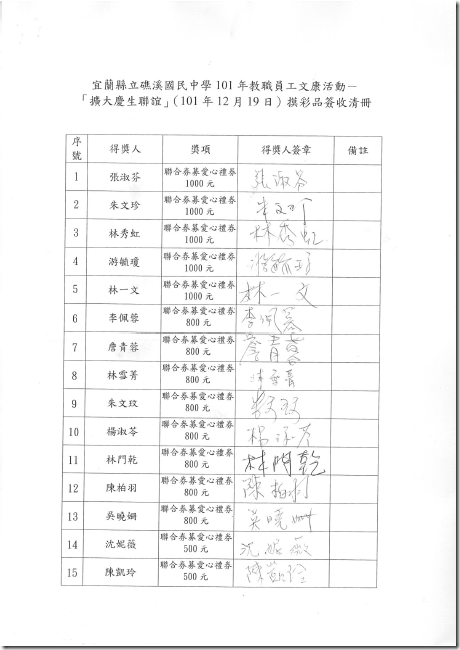 宜蘭縣立礁溪國民中學 101 年教職員工文康活動－
「擴大慶生聯誼」(101 年 12 月 19 日) 摸彩品簽收清冊
序號 得獎人 獎項 得獎人簽章 備註
1 張淑芬 聯合券募愛心禮券 1000 元 張淑芬
2 朱文珍 聯合券募愛心禮券 1000 元
3 林秀虹 聯合券募愛心禮券 1000 元 林秀虹
4 游毓瓊 聯合券募愛心禮券 1000 元
5 林一文 聯合券募愛心禮券 1000 元 林一文
6 李佩蓉 聯合券募愛心禮券 800 元 李佩蓉
7 詹青蓉 聯合券募愛心禮券 800 元 詹青蓉
8 林雪菁 聯合券募愛心禮券 800 元
9 朱文玟 聯合券募愛心禮券 800 元
10 楊淑苓 聯合券募愛心禮券 800 元
11 林門乾 聯合券募愛心禮券 800 元 林門乾
12 陳柏羽 聯合券募愛心禮券 800 元 陳柏羽
13 吳曉姍 聯合券募愛心禮券 800 元 吳曉姍
14 沈妮薇 聯合券募愛心禮券 500 元 沈妮薇
15 陳凱玲 聯合券募愛心禮券 500 元 陳凱玲